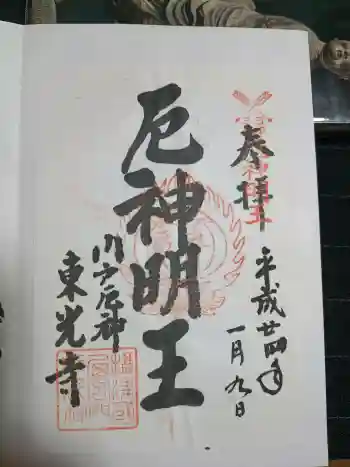 奉拝
平成廿四年
一月九日
厄神明王
門戸厄神
東光寺